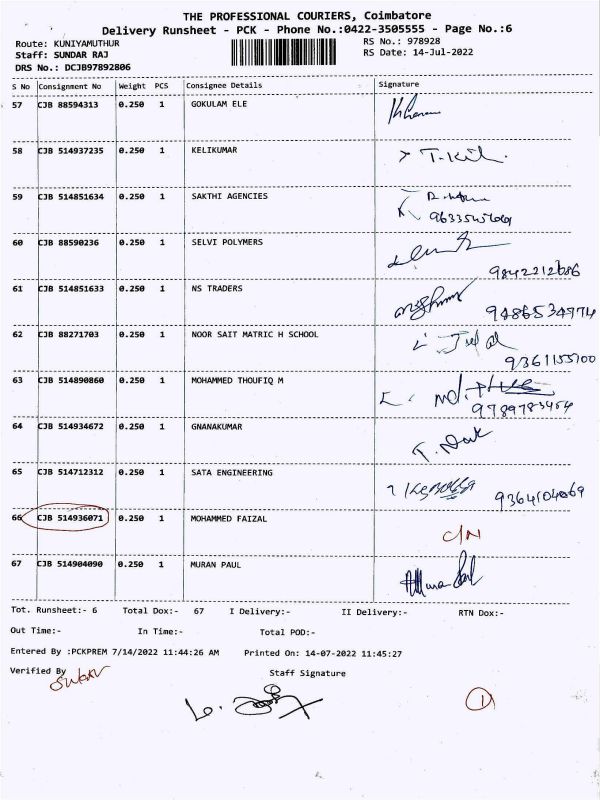 THE PROFESSIONAL COURIERS, Coimbatore
Delivery Runsheet - PCK - Phone No.:0422-3505555 - Page No.:6
Route: KUNIYAMUTHUR RS No.: 978928
Staff: SUNDAR RAJ RS Date: 14-Jul-2022
DRS No.: DCJB97892806
S No Consignment No Weight PCS Consignee Details Signature
57 CJB 88594313 0.250 1 GOKULAM ELE
58 CJB 514937235 0.250 1 KELIKUMAR
59 CJB 514851634 0.250 1 SAKTHI AGENCIES
60 CJB 88590236 0.250 1 SELVI POLYMERS
9842212686
61 CJB 514851633 0.250 1 NS TRADERS
9486534974
62 CJB 88271703 0.250 1 NOOR SAIT MATRIC H SCHOOL
9361155700
63 CJB 514890860 0.250 1 MOHAMMED THOUFIQ M
64 CJB 514934672 0.250 1 GNANAKUMAR
65 CJB 514712312 0.250 1 SATA ENGINEERING
9364104069
66 CJB 514936071 0.250 1 MOHAMMED FAIZAL
C/N
67 CJB 514904090 0.250 1 MURAN PAUL
Tot. Runsheet:- 6 Total Dox:- 67 I Delivery:- II Delivery:- RTN Dox:-
Out Time:- In Time:- Total POD:-
Entered By :PCKPREM 7/14/2022 11:44:26 AM Printed On: 14-07-2022 11:45:27
Verified By Staff Signature
1